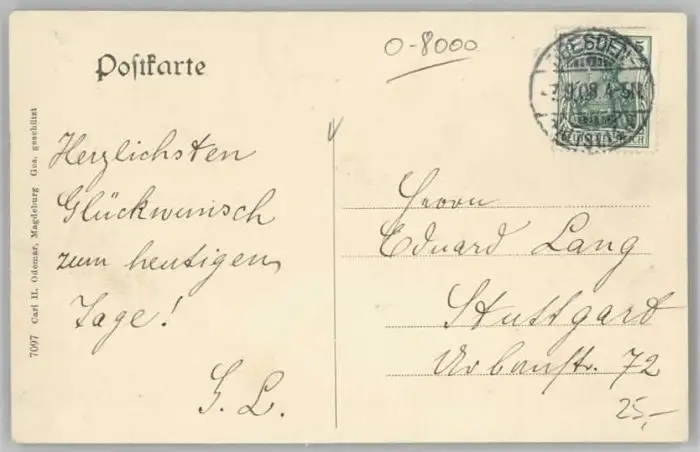 Postkarte
O-8000
DRESDEN-
7.9.08 4-5N.
5
Herzlichsten
Glückwunsch
zum heutigen
Tage!
G. L.
Herrn
Eduard Lang
Stuttgart
Urbanstr. 72
25,-
7097 Carl H. Odemar, Magdeburg Ges. geschützt